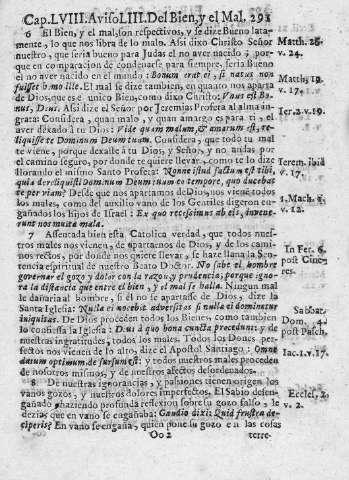 Cap.LVIII.Aviso LIII.Del Bien, y el Mal. 291
6 El bien, y el mal, son respectivos, y se dize Bueno lata-
mente, lo que nos libra de lo malo. Assi dixo Christo Señor
nuestro, que seria bueno para Judas el no aver nacido; por-
que en comparacion de condenarse para siempre, seria Bueno
el no aver nacido en el mundo: Bonum erat ei, si natus non
fuisset homo ille. El mal se dize tambien, en quanto nos aparta
de Dios, que es el unico Bien, como dixo Christo: Unus est Bo-
nus, Deus. Assi dize el Señor por Jeremias Profeta al alma in-
grata: Considera, quan malo, y quan amargo es para ti, el
aver dexado à tu Dios: Vide quam malum, & amarum est, re-
liquisse te Dominum Deum tuum. Considera, que todo tu mal
te viene, porque dexaste à tu Dios, y Señor, y no andas por
el camino seguro, por donde te quiere llevar, como te lo dize
llorando el mismo Santo Profeta: Nonne istud factum est tibi,
quia dereliquisti Dominum Deum tuum eo tempore, quo ducebat
te per viam? Desde que nos apartamos de Dios, nos viene todos
los males, como del auxilio vano de los Gentiles digeron en-
gañados los hijos de Israel: Ex quo recessimus ab eis, invene-
runt nos multa mala.
7 Assentada bien esta Catolica verdad, que todos nues-
tros males nos vienen, de apartarnos de Dios, y de los cami-
nos rectos, por donde nos quiere llevar, se haze llana la Sen-
tencia espiritual de nuestro Beato Doctor. No sabe el hombre
governar el gozo y dolor con la razon, y prudencia, porque igno-
ra la distancia que entre el bien, y el mal se halla. Ningun mal
le dañaria al hombre, si èl no se apartasse de Dios, dize la
Santa Iglesia: Nulla ei nocebit adversitas si nulla ei dominetur
iniquitas. De Dios proceden todos los Bienes, como tambien
lo confiessa la Iglesia: Deus à quo bona cuncta procedunt: y de
nuestras ingratitudes, todos los males. Todos los Dones per-
fectos nos vienen de lo alto, dize el Apostol Santiago: Omne
datum optimum desursum est: y todos nuestros males proceden
de nosotros mismos, y de nuestros afectos desordenados.
8 De nuestras ignorancias, y pasiones tienen origen los
vanos gozos, y nuestros dolores imperfectos. El Sabio desen-
gañado, haziendo profunda reflexion sobre su gozo falso, le
dezia, que en vano se engañaba: Gaudio dixi: Quid frustra de-
ciperis? En vano se engaña, quien pone su gozo en las cosas
Oo 2 terre-
Matth. 26.
v. 24.
Matth. 19.
v. 17.
Ier. 2. v. 19.
Ierem. ibid
v. 17.
1. Mach.
v. 12.
In Fer. 6.
post Cine-
res.
Sabbat.
Dom. 4.
post Pasch.
Iac. 1. v. 17.
Eccles. 2.
v. 2.